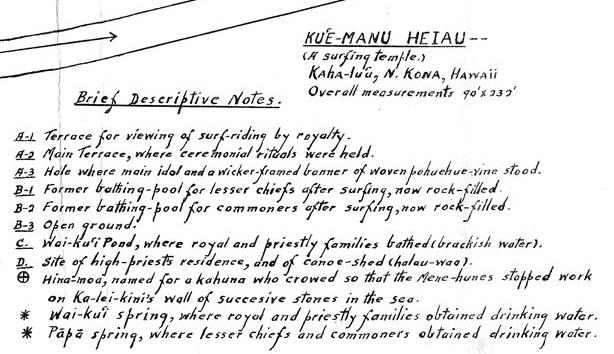 KU'E-MANU HEIAU--
(A surfing temple.)
KAHA-LU'U, N. KONA, HAWAII
Overall measurements 90'x232'
Brief Descriptive Notes.
A-1 Terrace for viewing of surf-riding by royalty.
A-2 Main Terrace, where ceremonial rituals were held.
A-3 Hole where main idol and a wicker-framed banner of woven pohuehue-vine stood.
B-1 Former bathing-pool for lesser chiefs after surfing, now rock-filled.
B-2 Former bathing-pool for commoners after surfing, now rock-filled.
B-3 Open ground.
C. Wai-ku'i Pond, where royal and priestly families bathed (brackish water).
D. Site of high-priests residence, and of canoe-shed (halau-waa).
⊕ Hina-moa, named for a kahuna who crowed so that the Mene-hunes stopped work
on Ka-lei-kini's wall of succesive stones in the sea.
* Wai-ku'i spring, where royal and priestly families obtained drinking water.
* Pāpā spring, where lesser chiefs and commoners obtained drinking water.